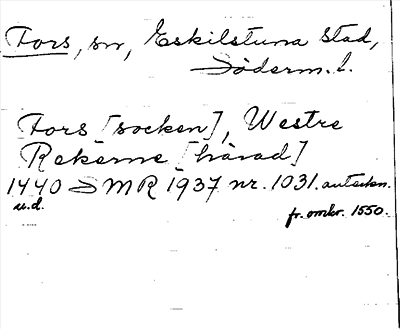 Fors, sn, Eskilstuna stad,
Söderm. l.
Fors [socken], Westre
Rekerne [härad]
1440 SMR 1937 nr. 1031. anteckn.
u.d.
fr. omkr. 1550.